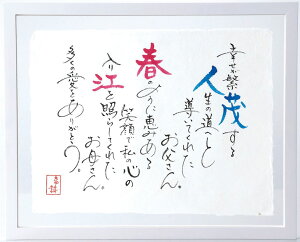 幸せ繁茂する
人生の道へと
導いてくれた
お父さん。
春のように恵みある
笑顔で私の心の
入り江を照らしてくれた
お母さん。
多くの愛をありがとう。